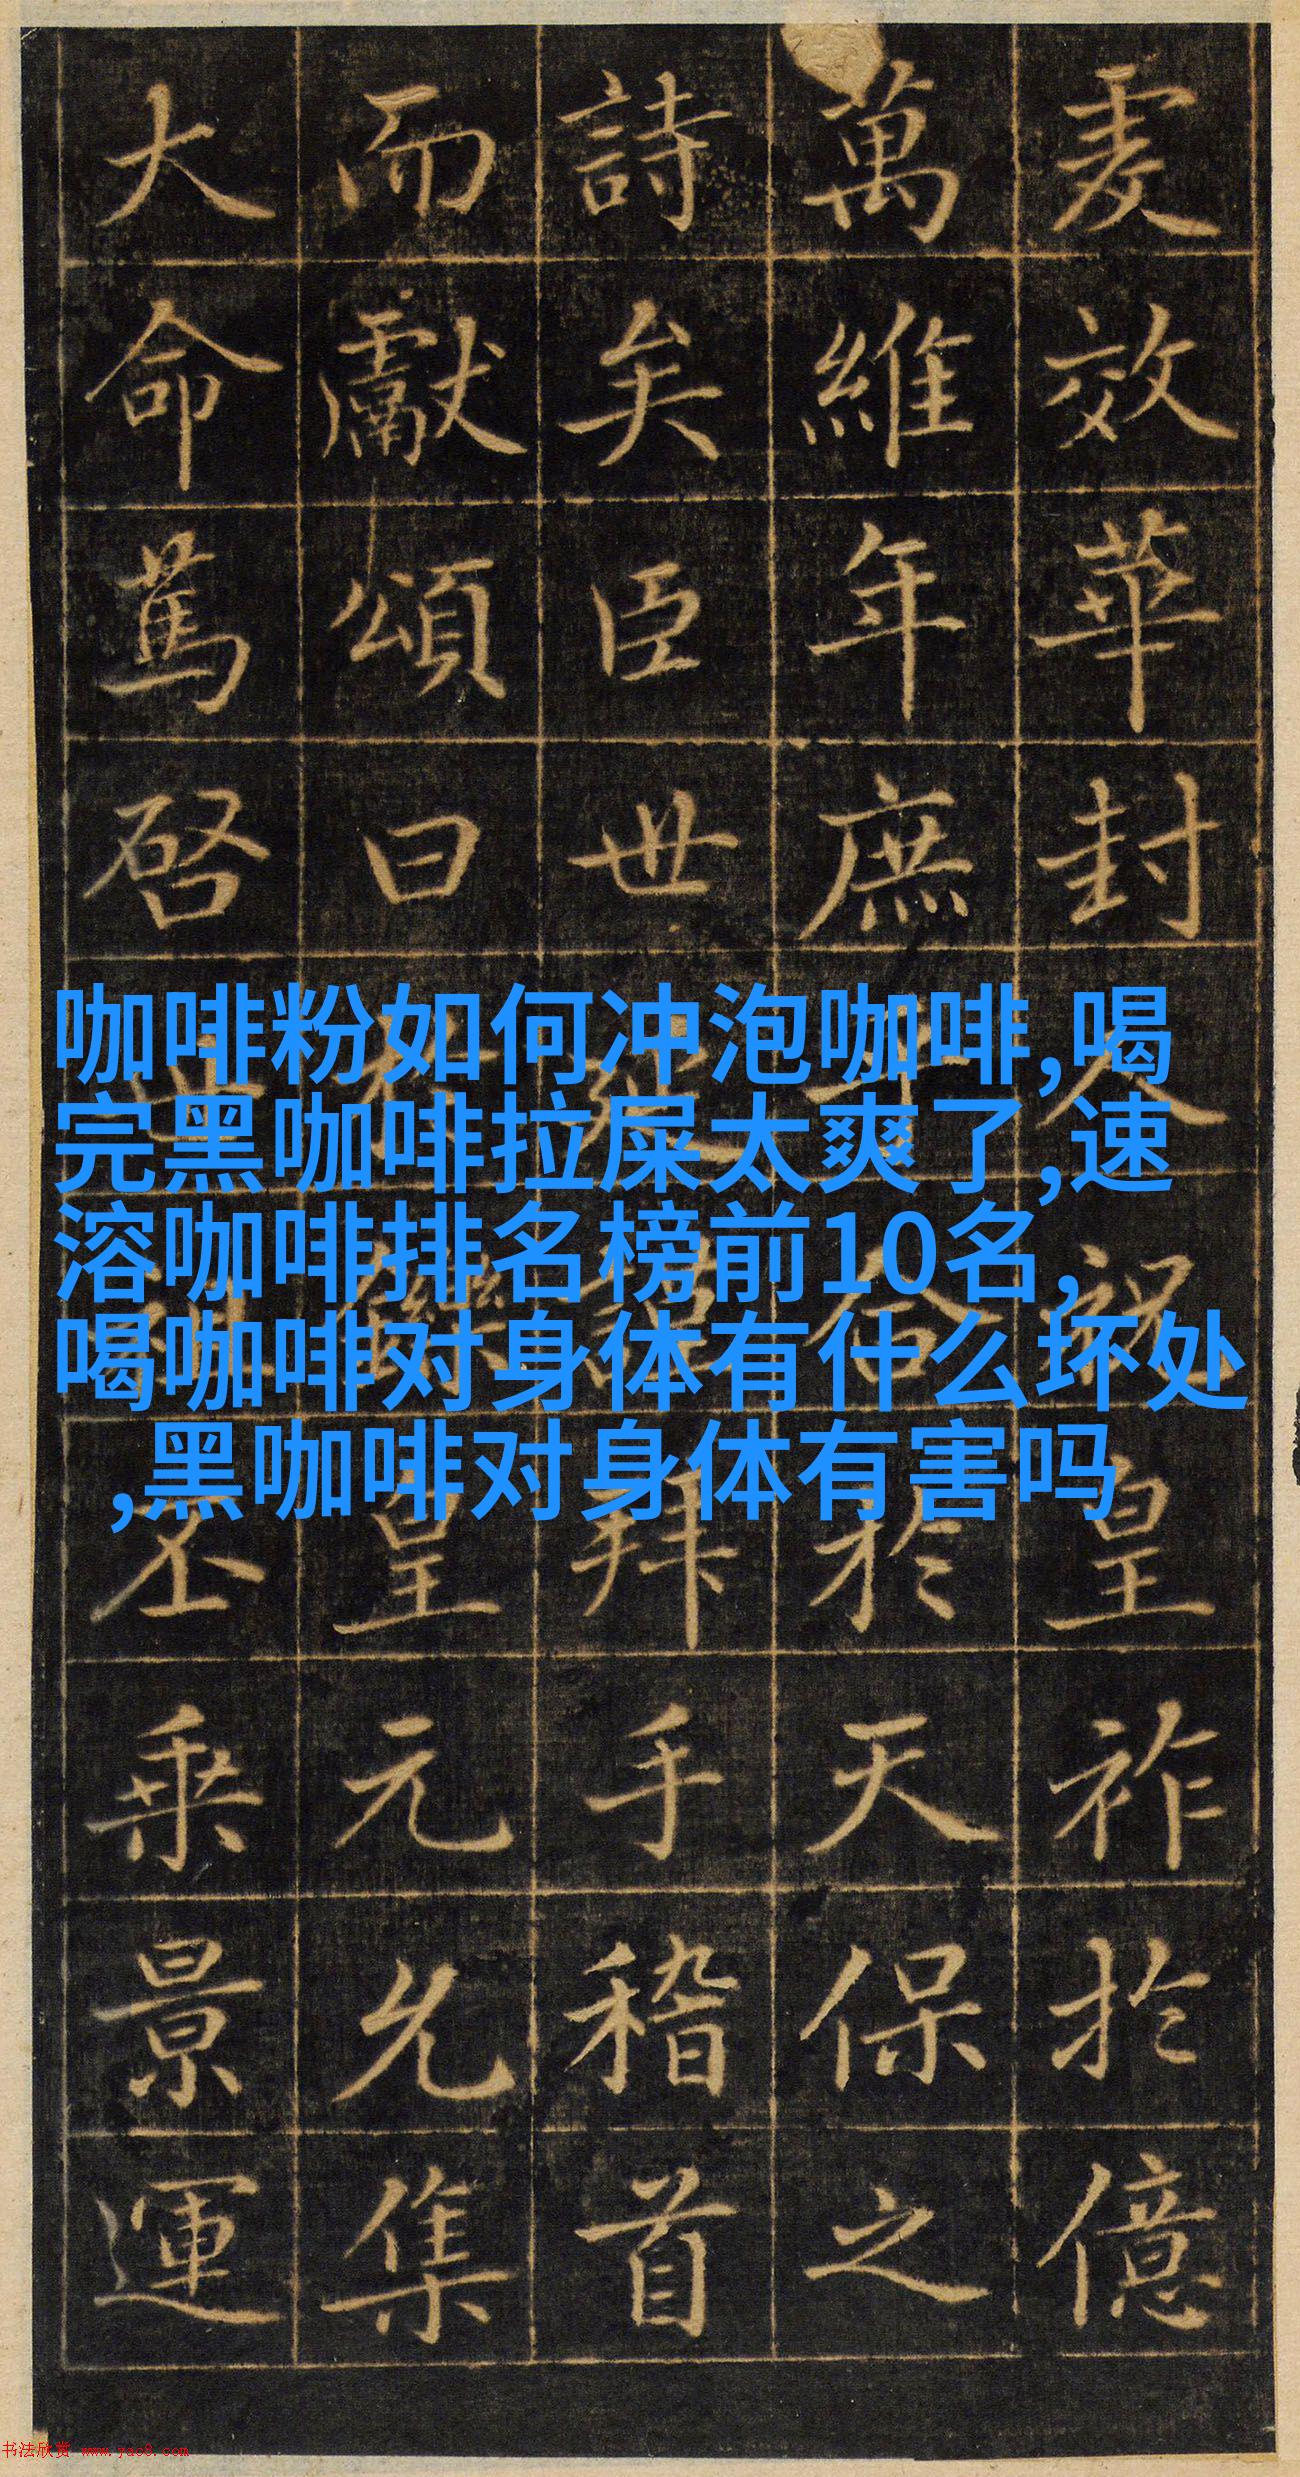 咖啡粉如何冲泡咖啡,喝
完黑咖啡拉屎太爽了,速
溶咖啡排名榜前10名,
喝咖啡对身体有什么坏处
,黑咖啡对身体有害吗
虔效華封人祝皇祚於億
萬維年庶合於天保之
詩矣臣世謹拜手稽首
而獻頌曰於鑠皇元允集
大命篤啓丕乘景運
书法欣赏 www.yac8.com